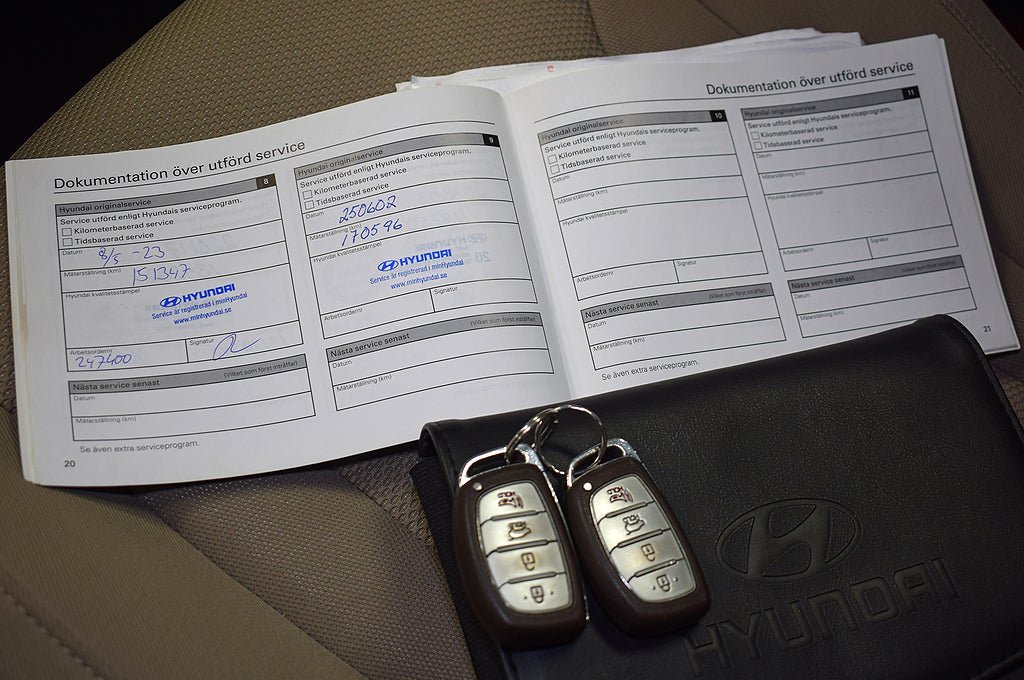 Dokumentation över utförd service
Hyundai originalservice 8
Service utförd enligt Hyundais serviceprogram.
Kilometerbaserad service
Tidsbaserad service
Datum 8/5 -23
Mätarställning (km) 151347
Hyundai kvalitetsstämpel
HYUNDAI
Service är registrerad i minHyundai
www.minhyundai.se
Arbetsordernr Signatur
247400
Nästa service senast (Vilket som först inträffar)
Datum
Mätarställning (km)
Se även extra serviceprogram.
20
Hyundai originalservice 9
Service utförd enligt Hyundais serviceprogram.
Kilometerbaserad service
Tidsbaserad service
Datum 250602
Mätarställning (km) 170596
Hyundai kvalitetsstämpel
HYUNDAI
Service är registrerad i minHyundai
www.minhyundai.se
Arbetsordernr Signatur
Nästa service senast (Vilket som först inträffar)
Datum
Mätarställning (km)
Dokumentation över utförd service
Hyundai originalservice 10
Service utförd enligt Hyundais serviceprogram.
Kilometerbaserad service
Tidsbaserad service
Datum
Mätarställning (km)
Hyundai kvalitetsstämpel
Arbetsordernr Signatur
Nästa service senast (Vilket som först inträffar)
Datum
Mätarställning (km)
Se även extra serviceprogram.
Hyundai originalservice 11
Service utförd enligt Hyundais serviceprogram.
Kilometerbaserad service
Tidsbaserad service
Datum
Mätarställning (km)
Hyundai kvalitetsstämpel
Arbetsordernr Signatur
Nästa service senast (Vilket som först inträffar)
Datum
Mätarställning (km)
21
HYUNDAI